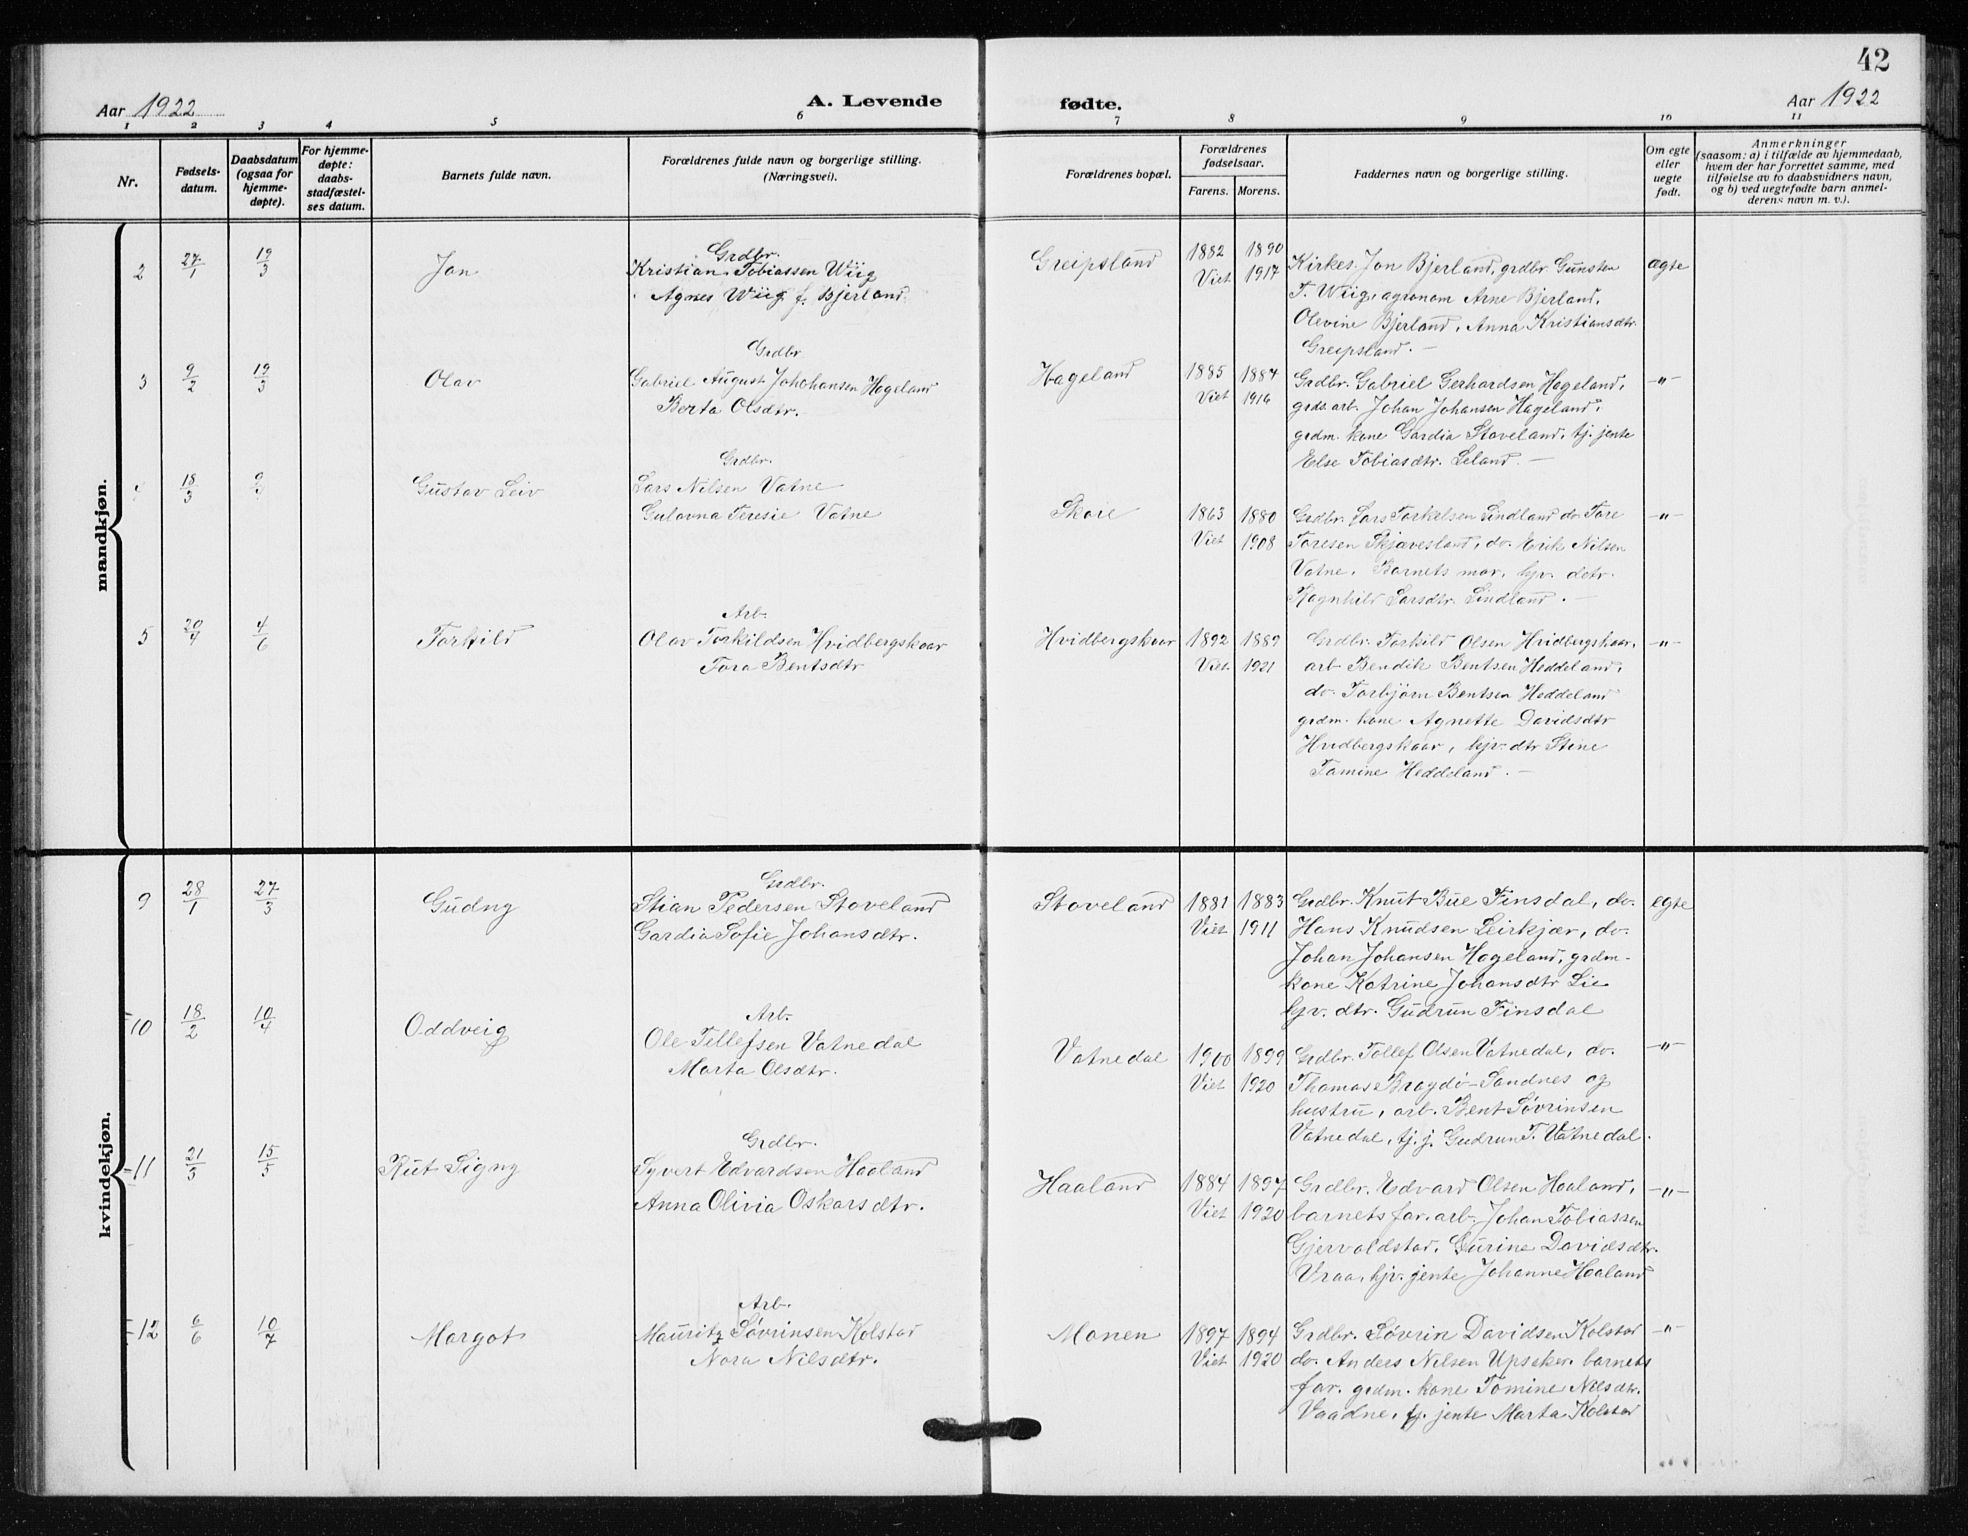 42
Aar 1922
A. Levende
fødte.
Aar 1922
1 2 3 4 5 6 7 8 9 10 11
Nr.
Fødsels-
datum.
Daabsdatum
(ogsaa for
hjemme-
døpte).
For hjemme-
døpte:
daabs-
stadfæstel-
ses datum.
Barnets fulde navn.
Forældrenes fulde navn og borgerlige stilling.
(Næringsvei).
Forældrenes bopæl.
Forældrenes
fødselsaar.
Farens. Morens.
Faddernes navn og borgerlige stilling.
Om egte
eller
uegte
født.
Anmerkninger
(saasom: a) i tilfælde av hjemmedaab,
hvem der har forrettet samme, med
tilføielse av to daabsvidners navn,
og b) ved uegtefødte barn anmel-
derens navn m. v.).
mandkjøn.
2 27/1 19/3 Jon
Grdbr.
Kristian Tobiassen Wiig
Agnes Wiig f. Bjerland.
Greipsland
1882 1890
Viet 1917
Kirkes. Jon Bjerland, grdbr. Gunsten
T. Wiig, agronom Arne Bjerland,
Olevine Bjerland, Anna Kristiansdtr.
Greipsland. —
ægte
3 9/2 19/3 Olav
Grdbr
Gabriel August Johohansen Hageland
Berta Olsdtr.
Hageland
1885 1887
Viet 1916
Grdbr. Gabriel Gerhardsen Hageland,
grds. arb. Johan Johansen Hageland,
grdm. kone Gardia Stoveland, tj. jente
Else Tobiasdtr. Leland. —
—"—
18/3 Gustav Leiv
Grdbr.
Lars Nilsen Vatne
Gulovna Teresie Vatne
Skore
1863 1880
Viet 1908
Grdbr. Lars Torkelsen Lindland do. Tore
Toresen Skjævesland, do. Erik Nilsen
Vatne, Barnets mor, hjv. detr.
Ragnhild Larsdtr. Lindland. —
—"—
5 20/4 4/6 Torkild
Arb.
Olav Torkildsen Hvidbergskaar
Tora Bentsdtr
Hvidbergskaar
1892 1889
Viet 1921
Grdbr. Torkild Olsen Hvidbergskaar,
arb Bendik Bentsen Heddeland,
do. Torbjørn Bentsen Heddeland
grdm. kone Agnette Davidsdtr
Hvidbergskaar, hjv. dtr Stine
Tomine Heddeland. —
—"—
kvindekjøn.
9 28/1 27/3 Gudny
Grdbr.
Stian Pedersen Stoveland
Gardia Sofie Johansdtr.
Stoveland
1881 1883
Viet 1911
Grdbr. Knut Bue Finsdal, do.
Hans Knudsen Leirkjær, do.
Johan Johansen Hageland, grdm-
kone Katrine Johansdtr Lie
hjv. dtr. Gudrun Finsdal
egte
10 18/2 10/4 Oddveig
Arb.
Ole Tellefsen Vatnedal
Marta Olsdtr.
Vatnedal
1900 1899
Viet 1920
Grdbr. Tollef Olsen Vatnedal, do.
Thomas Bragdø-Sandnes og
hustru, arb. Bent Søvrinsen
Vatnedal, tj. j. Gudrun T. Vatnedal.
—"—
11 21/3 15/5 Rut Signy
Grdbr.
Syvert Edvardsen Haaland
Anna Olivia Oskarsdtr.
Haaland
1884 1897
Viet 1920
Grdbr. Edvard Olsen Haaland,
barnets far, arb. Johan Tobiassen
Gjervoldstad, Gurine Davidsdtr.
Vraa, hjv. jente Johanne Haaland
—"—
12 6/6 10/7 Margot
Arb.
Mauritz Søvrinsen Kolstad
Nora Nilsdtr.
Monen
1897 1894
Viet 1920
Grdbr. Søvrin Davidsen Kolstad
do. Anders Nilsen Upsaker, barnets
far, grdm. kone Tomine Nilsdtr.
Vaadne, tj. jente Marta Kolstad
—"—